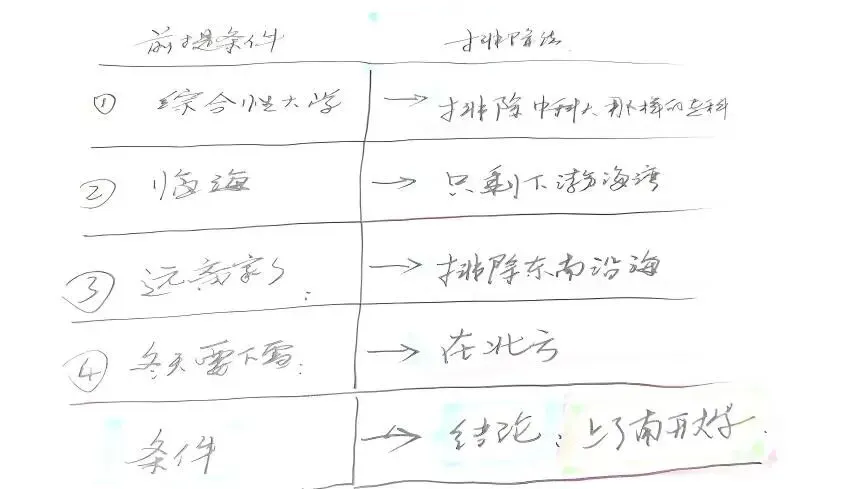 前提条件 排除法
① 综合性大学 → 排除中科大那样的专科
② 临海 → 只剩下渤海湾
③ 远离家乡: → 排除东南沿海
④ 冬天要下雪: → 在北方
条件 → 结论:上了南开大学.